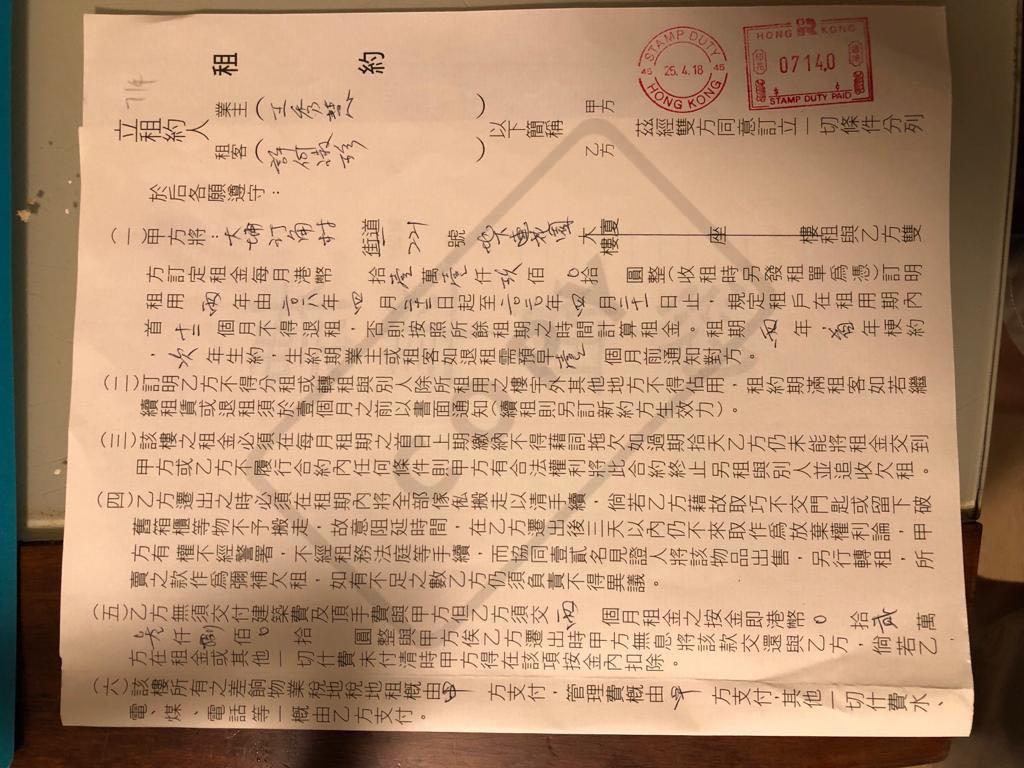 租約
STAMP DUTY
46 25.4.18 46
HONG KONG
HONG KONG
07140
$
STAMP DUTY PAID
COPY
7/4
立租約人
業主（王秀慧）
租客（許何淑珍）
以下簡稱
甲方
乙方
茲經雙方同意訂立一切條件分列
於后各願遵守：
（一）甲方將：大埔汀角村 街道 221 號 地下連花園 大廈 樓 座 樓租與乙方雙
方訂定租金每月港幣 拾壹萬壹仟玖佰0拾 圓整（收租時另發租單為憑）訂明
租用兩年由二〇一八年四月二十二日起至二〇二〇年四月二十一日止，規定租戶在租用期內
首十二個月不得退租，否則按照所餘租期之時間計算租金。租期兩年，首年梗約
，次年生約，生約期業主或租客如退租需預早壹個月前通知對方。
（二）訂明乙方不得分租或轉租與別人除所租用之樓宇外其他地方不得佔用，租約期滿租客如若繼
續租賃或退租須於壹個月之前以書面通知（續租則另訂新約方生效力）。
（三）該樓之租金必須在每月租期之首日上期繳納不得藉詞拖欠如過期拾天乙方仍未能將租金交到
甲方或乙方不履行合約內任何條件則甲方有合法權利將此合約終止另租與別人並追收欠租。
（四）乙方遷出之時必須在租期內將全部傢俬搬走以清手續，倘若乙方藉故取巧不交門匙或留下破
舊箱櫃等物不予搬走，故意阻延時間，在乙方遷出後三天以內仍不來取作為放棄權利論，甲
方有權不經警署，不經租務法庭等手續，而協同壹貳名見證人將該物品出售，另行轉租，所
賣之款作為彌補欠租，如有不足之數乙方仍須負責不得異議。
（五）乙方無須交付建築費及頂手費與甲方但乙方須交 個月租金之按金即港幣0拾貳萬
仟 佰0拾 圓整與甲方俟乙方遷出時甲方無息將該款交還與乙方，倘若乙
方在租金或其他一切什費未付清時甲方得在該項按金內扣除。
（六）該樓所有之差餉物業稅地稅地租概由甲方支付，管理費概由甲方支付，其他一切什費水、
電、煤、電話等一概由乙方支付。